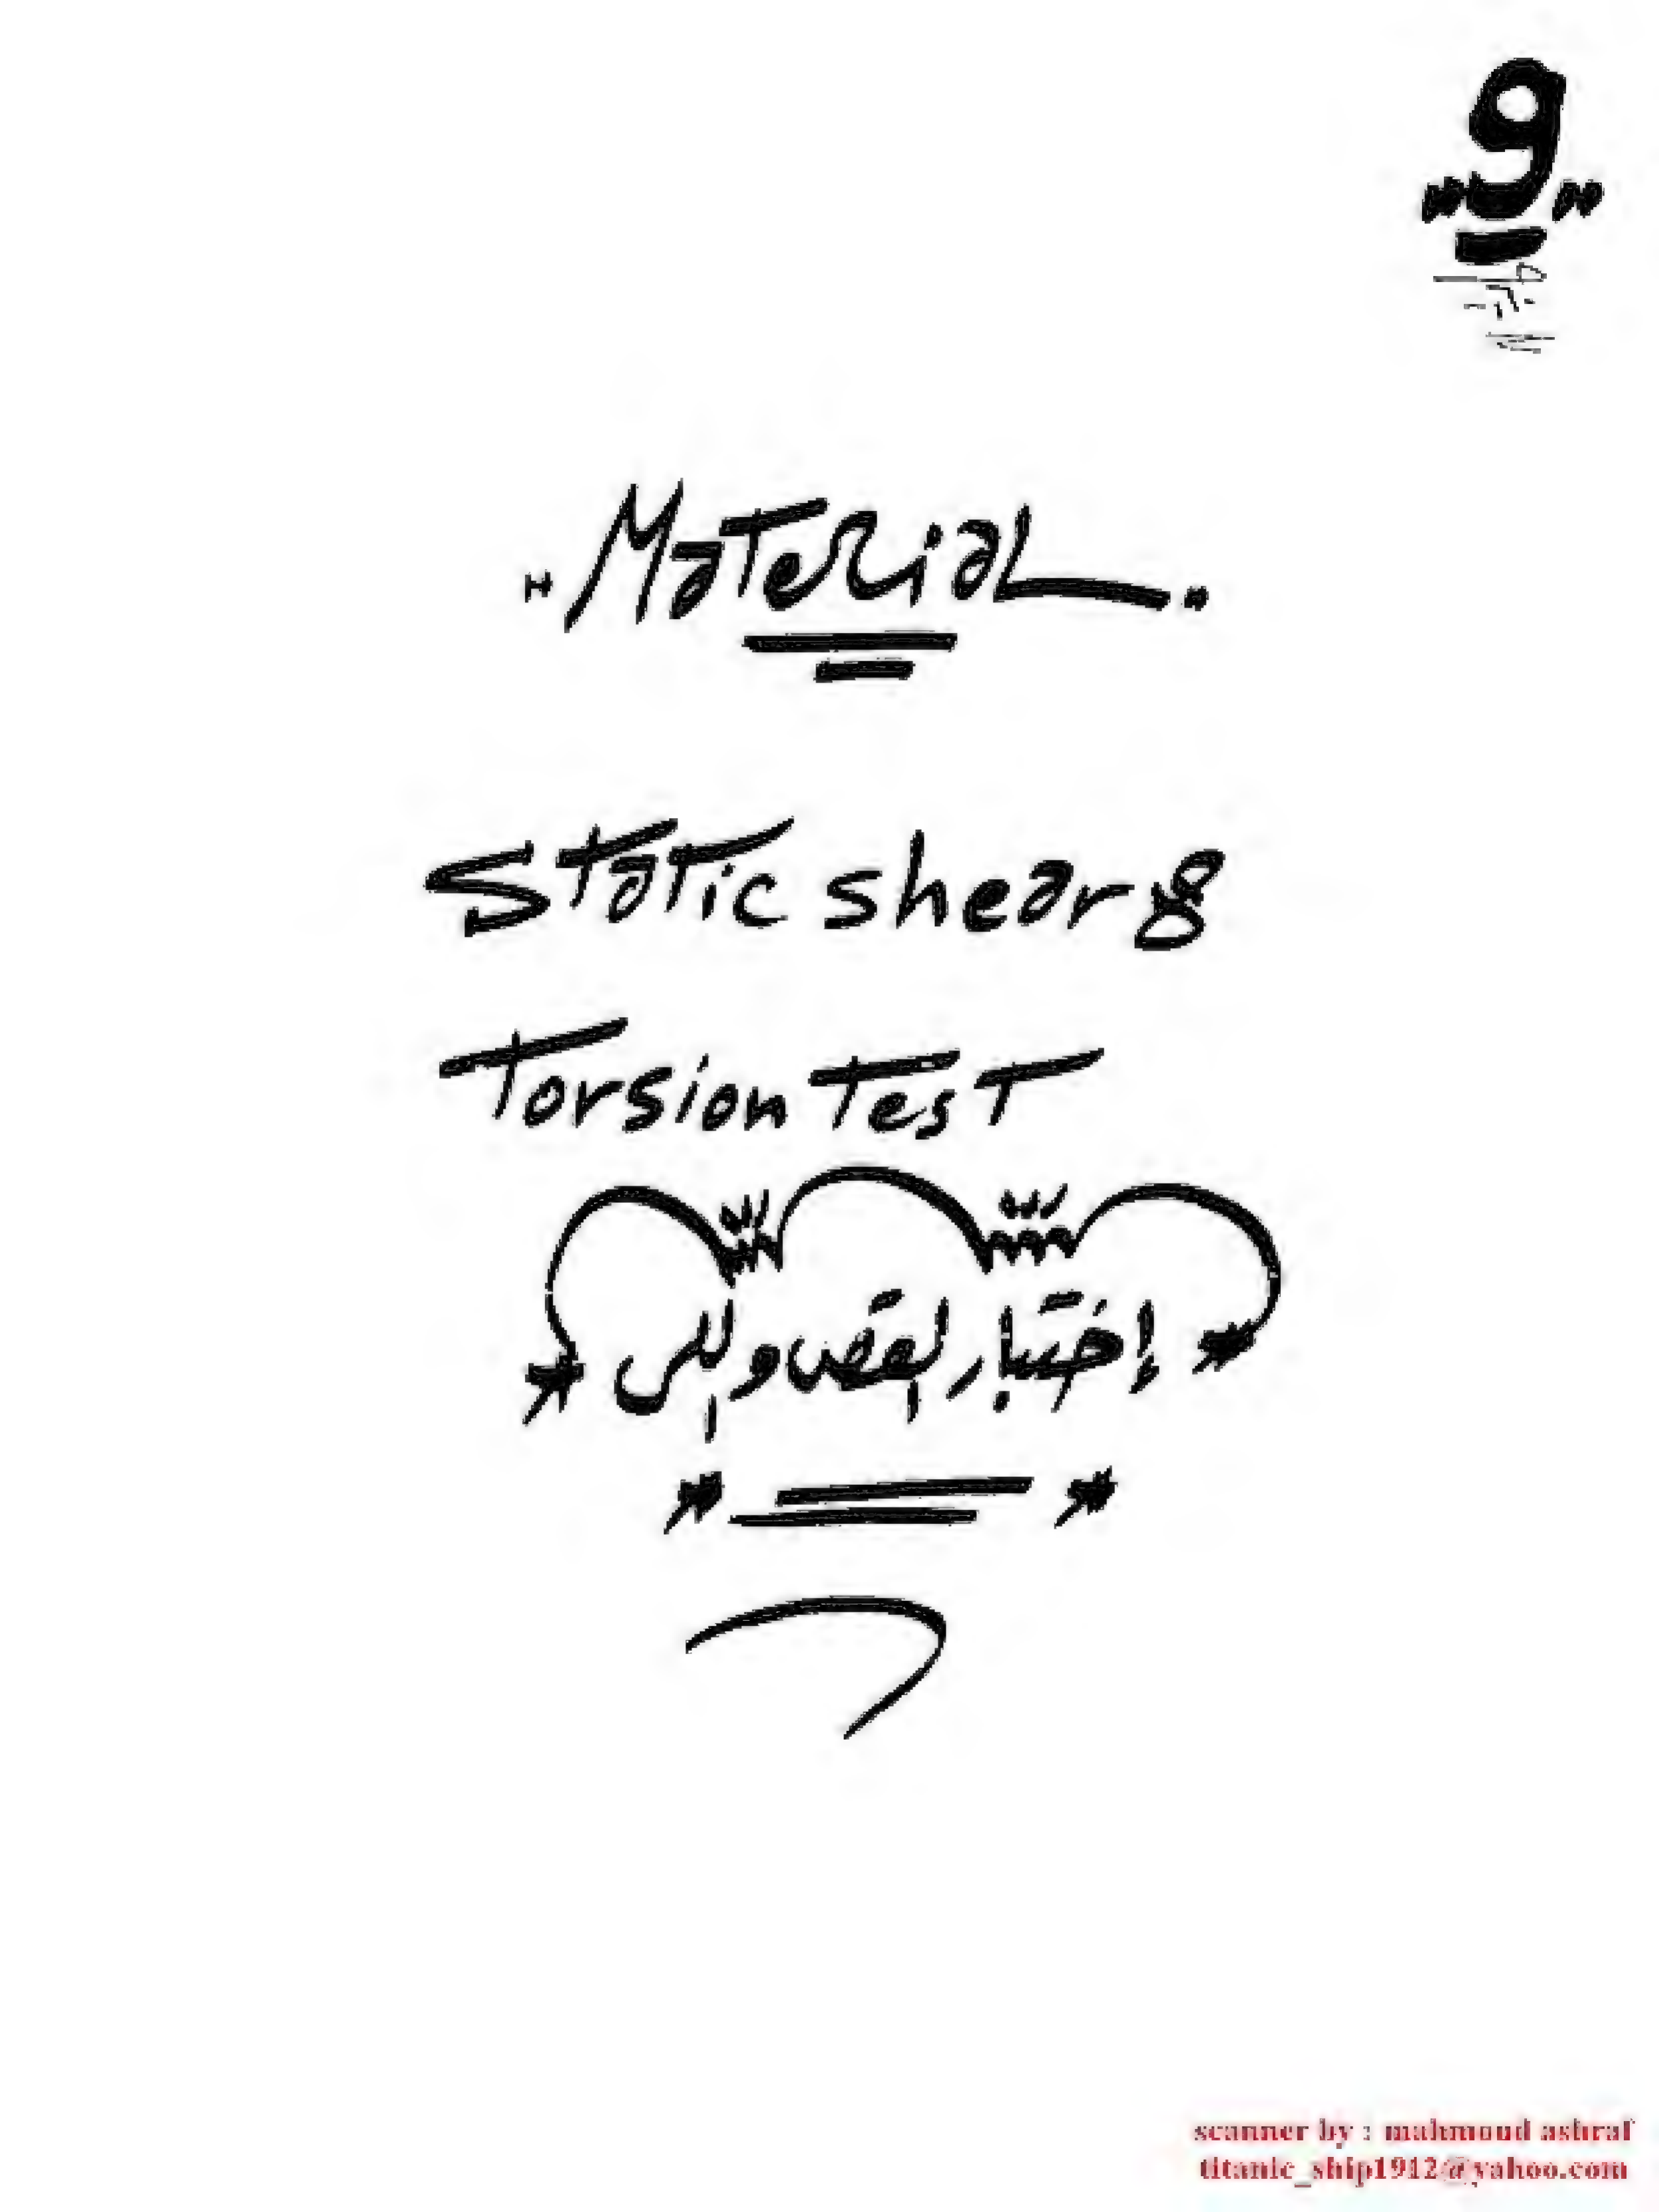 "9"
"Material"
Static shear &
Torsion Test
إختبار القص واللى
scanner by : mahmoud ashraf
titanic_ship1912@yahoo.com